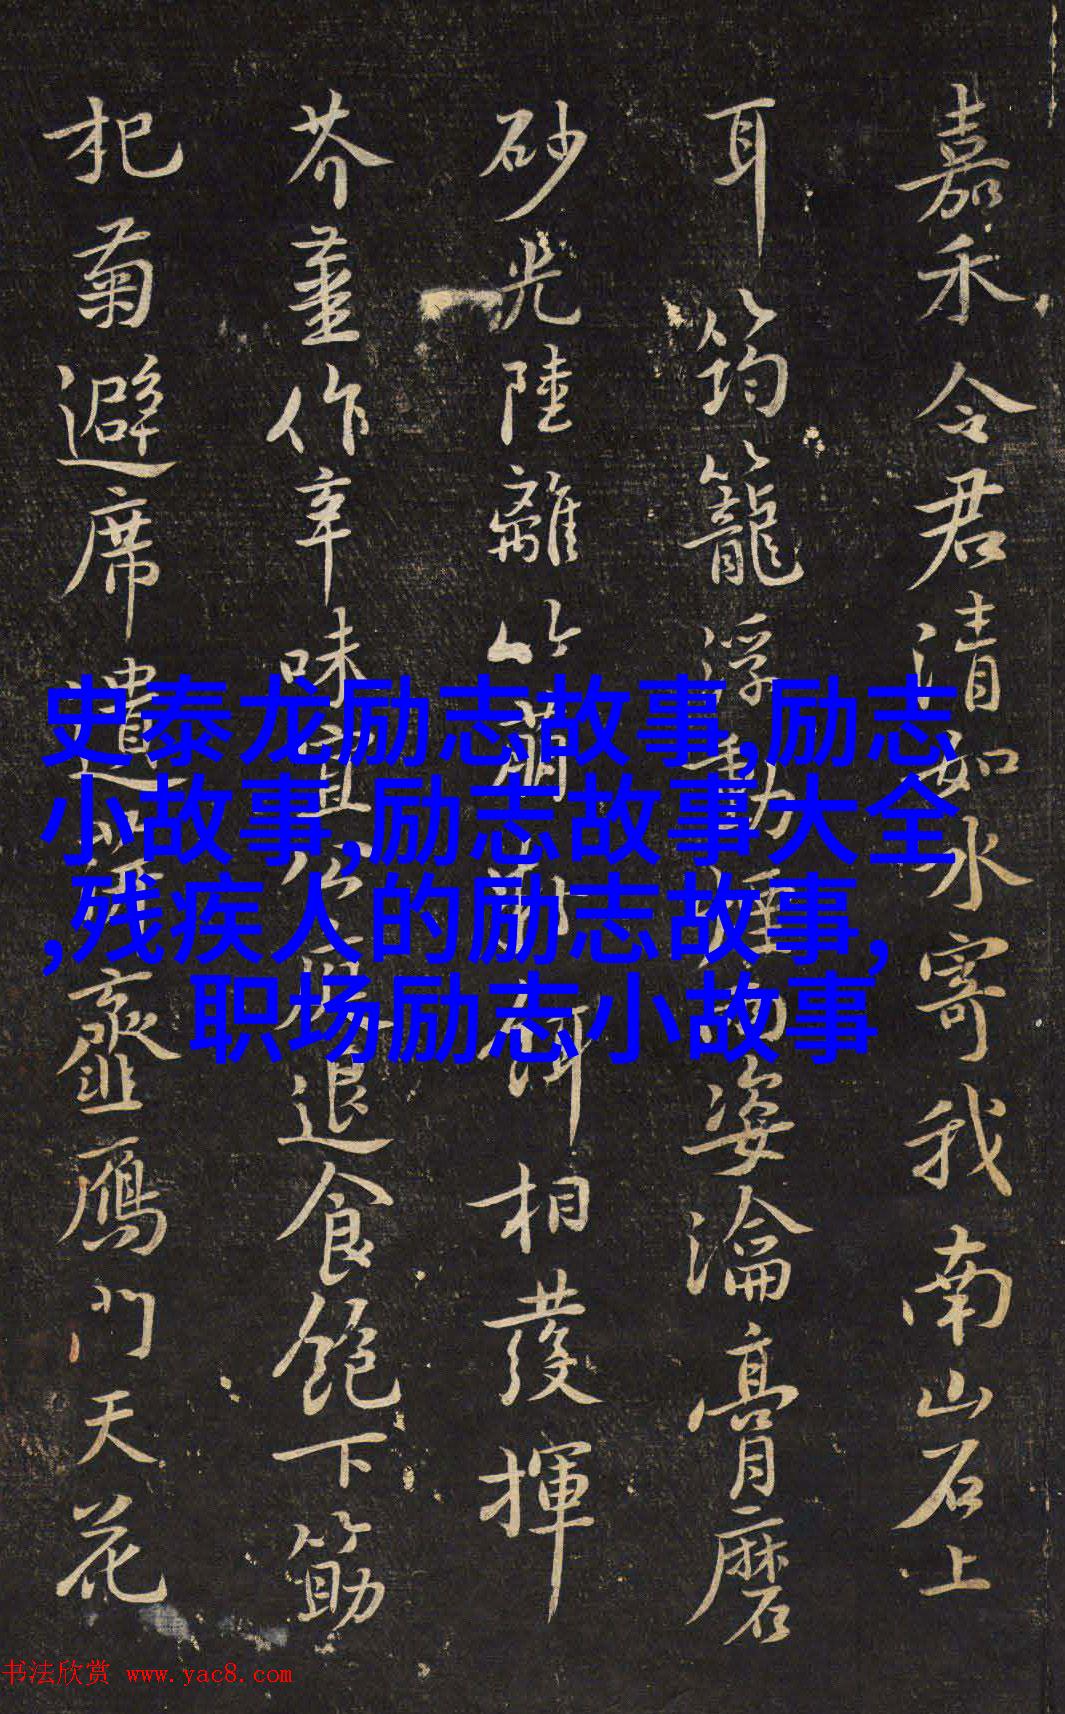 嘉禾令君清如水寄我南山石上
耳筠籠浮動姿瀹膏磨
砂光陸離竹萌餌相發揮
芥作辛味宜公退食飽下筯
杞菊避席遺虀鴈門天花
史泰龙励志故事,励志
小故事,励志故事大全
,残疾人的励志故事,
职场励志小故事
书法欣赏 www.yac8.com